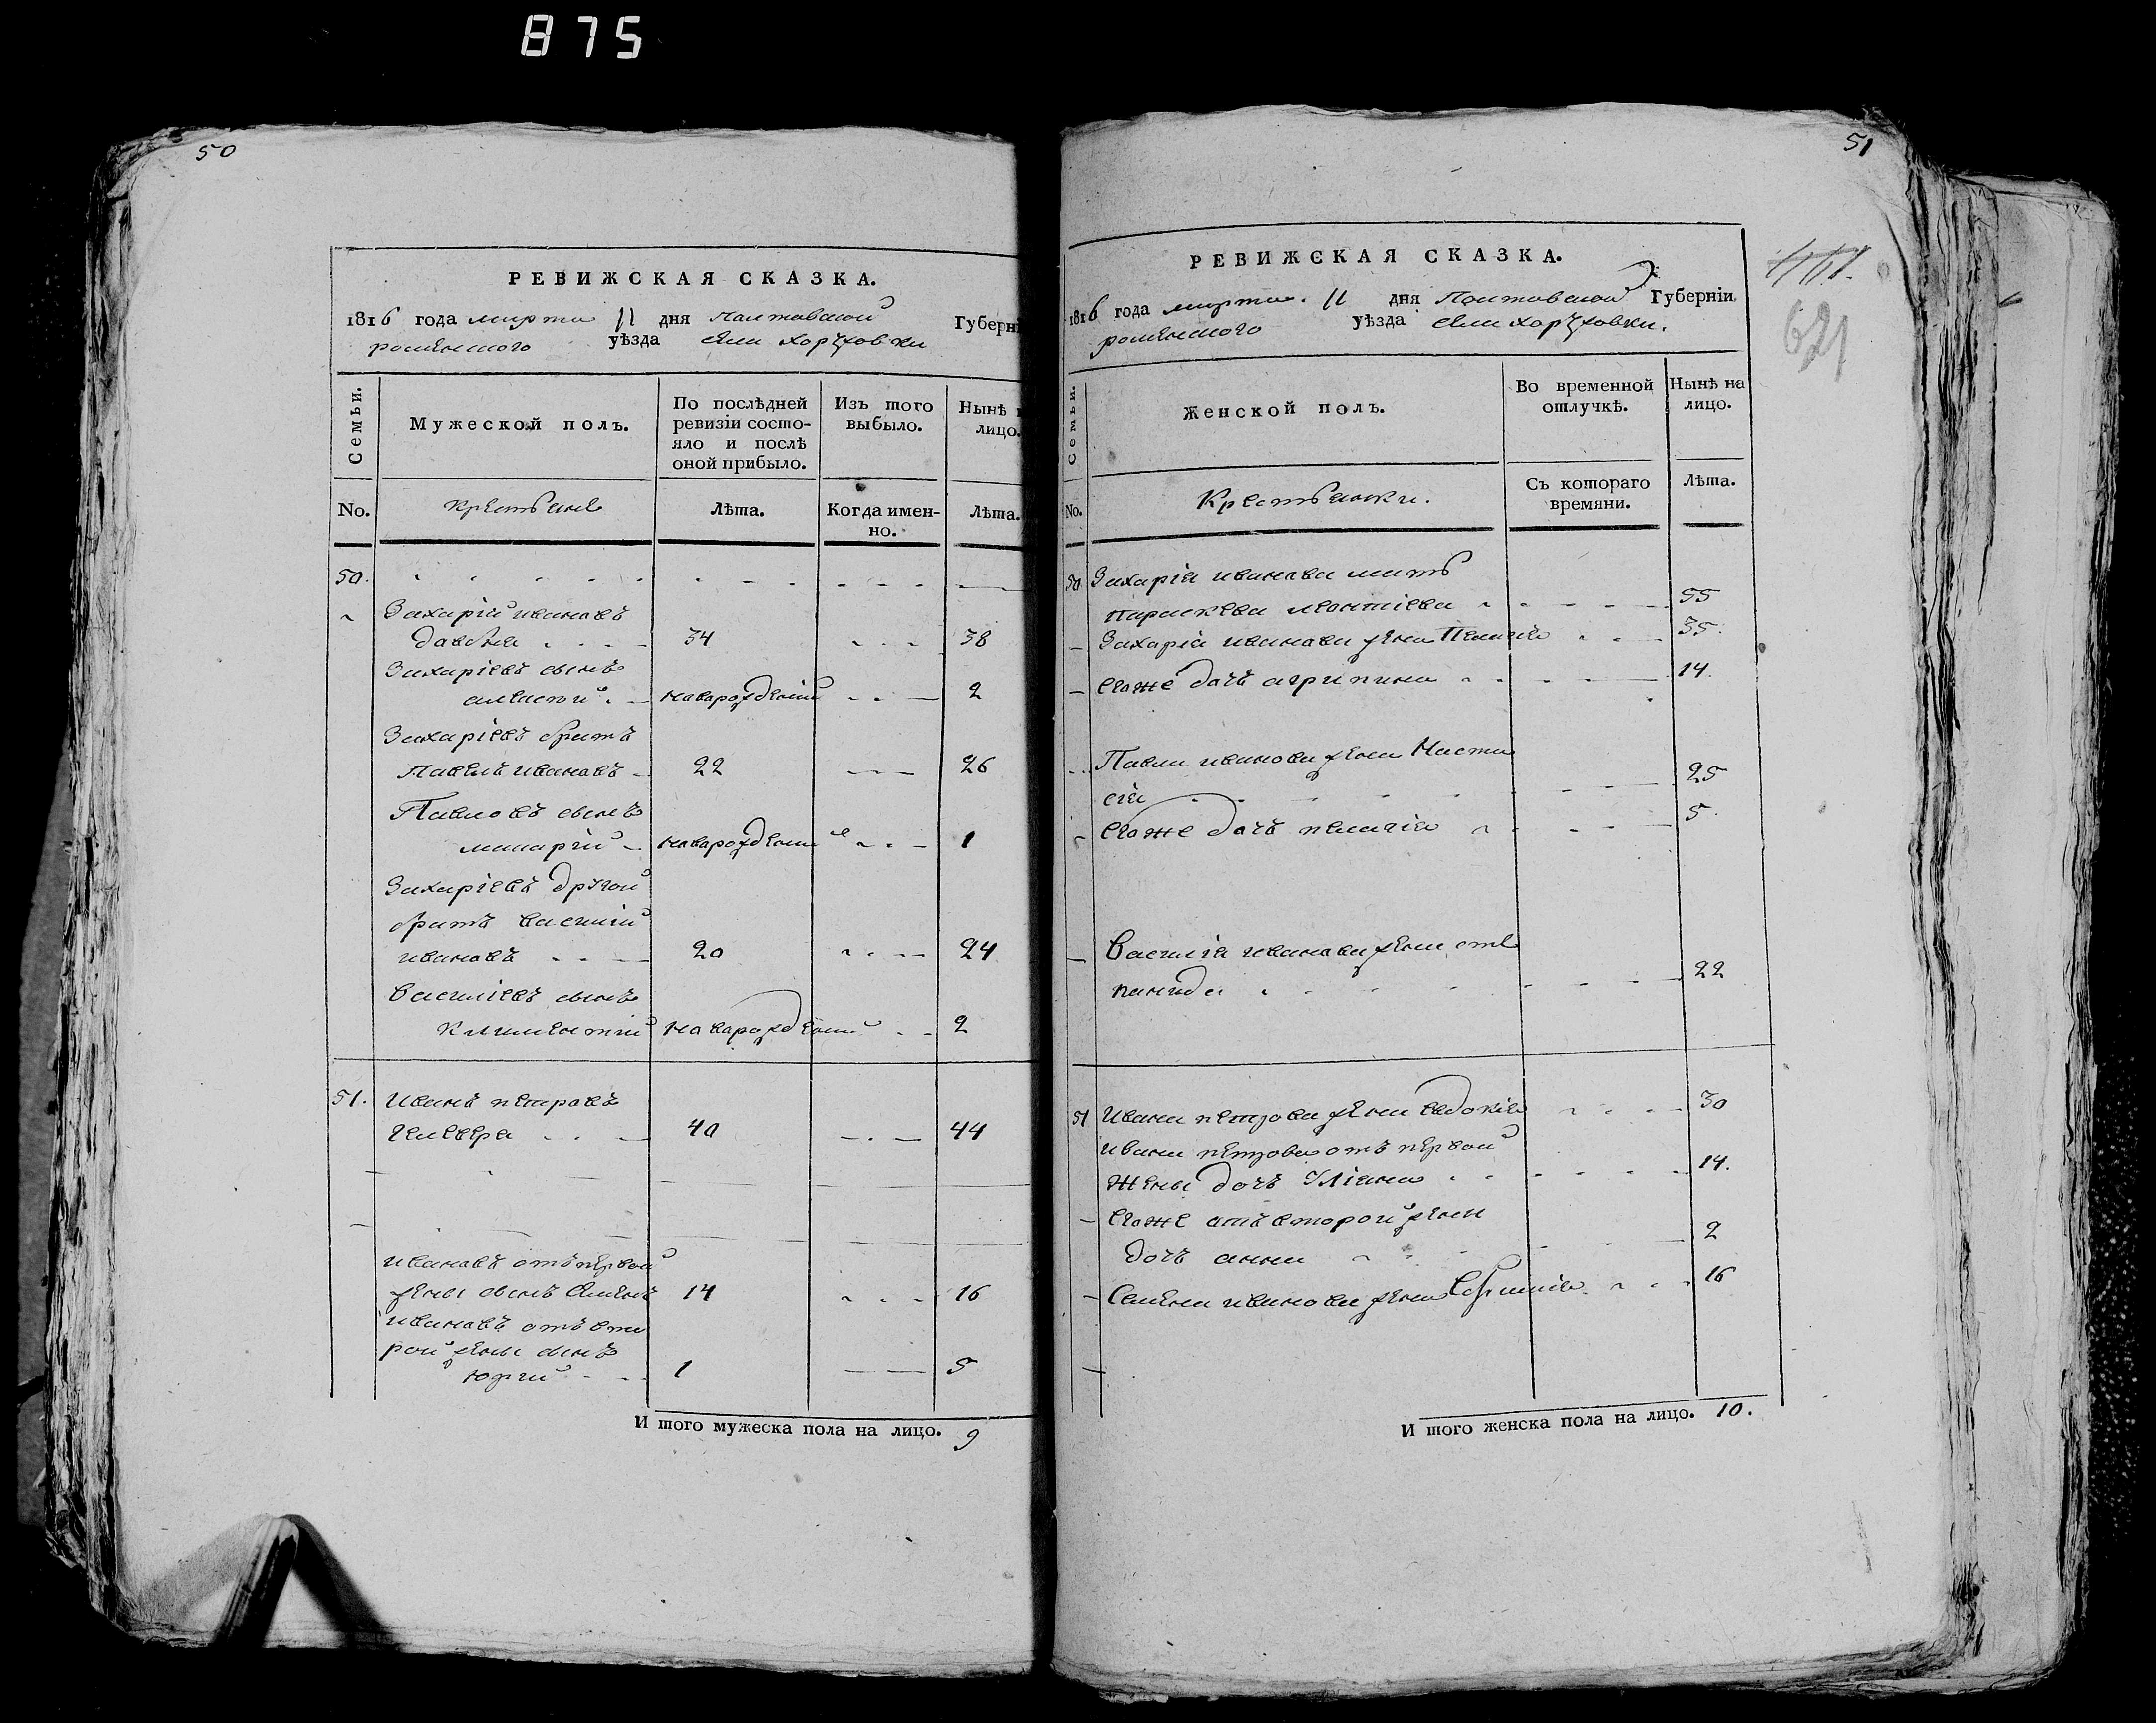 875
50
РЕВИЖСКАЯ СКАЗКА.
1816 года марта 11 дня Полтавской Губерні
роменского уѣзда села Хоружовки
Семьи.
Мужеской полъ.
По послѣдней ревизіи состояло и послѣ оной прибыло.
Изъ того выбыло.
Нынѣ лицо.
No.
Крестьяне
Лѣта.
Когда именно.
Лѣта.
50.
Захарій ивановъ
34 38
Захаріевъ сынъ
алексій новорожденній 2
Захаріевъ братъ
Павелъ ивановъ 22 26
Павловъ сынъ
макарій новорожденній 1
Захаріевъ другой
братъ василій
ивановъ 20 24
Василіевъ сынъ
Климентій новорожденній 2
51. Иванъ петровъ
40 44
ивановъ отъ первой
жены сынъ Семенъ 14 16
ивановъ отъ вто
рой жены сынъ
юрий 1 5
И того мужеска пола на лицо. 9
51
РЕВИЖСКАЯ СКАЗКА.
1816 года марта 11 дня Полтавской Губерніи
роменского уѣзда села хоружовки.
461.
621
Семьи.
Женской полъ.
Во временной отлучкѣ.
Нынѣ на лицо.
No.
Крестьянки.
Съ котораго времяни.
Лѣта.
50 Захарія иванова мать
параскева леонтіева 55
Захарія иванова жена Пелагія 35.
Егоже дочь агрипина 14.
Павла иванова жена Наста
сія 25
Егоже дочь пелагія 5.
Василія иванова жена сте
панида 22
51 Ивана петрова жена евдокія 30
ивана петрова отъ первой
жены дочь Уліяна 14.
Егоже отъ второй жены
дочь анна 2
Семена иванова жена Ефимія 16
И того женска пола на лицо. 10.